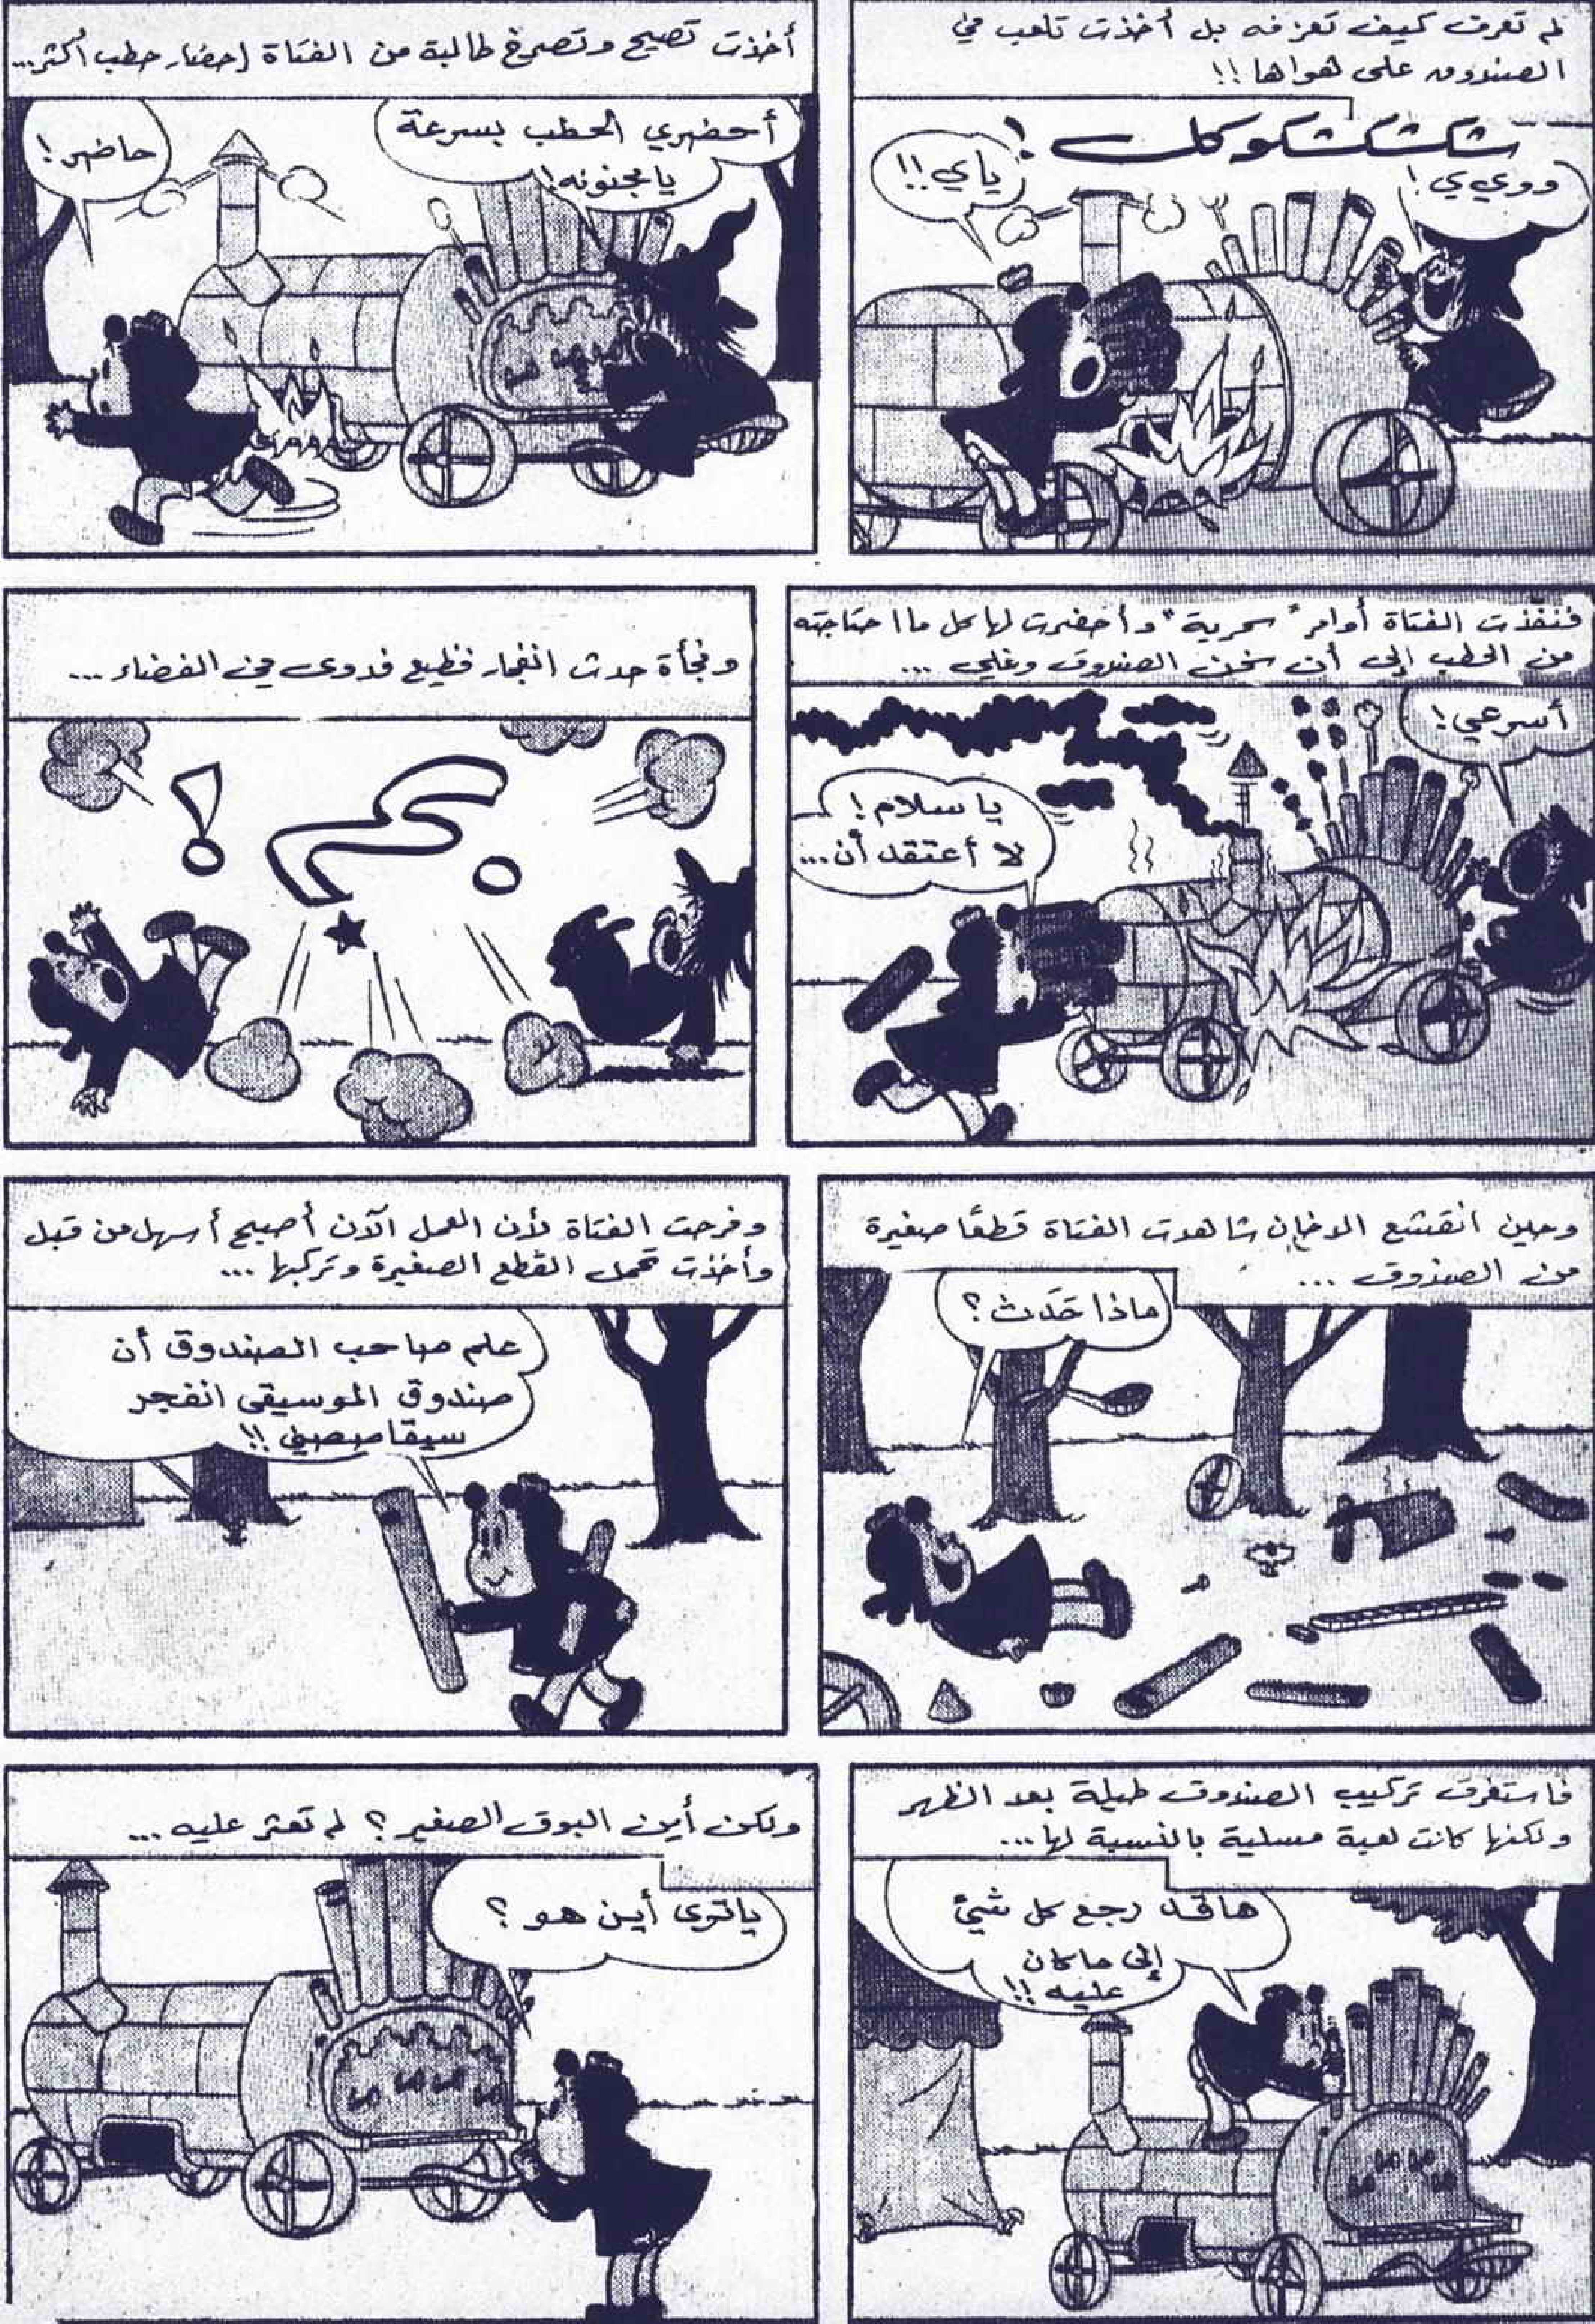 لم تعرف كيف تعزفه بل أخذت تلعب في
الصندوق على هواها!!
شكشكشكوكك!
ووي ي!
ياي!!
أخذت تصيح وتصرخ طالبة من الفتاة إحضار حطب أكثر...
أحضري الحطب بسرعة
يا مجنونه!
حاضر!
فنفّذت الفتاة أوامر "سحرية" وأحضرت لها كل ما احتاجته
من الحطب إلى أن سخن الصندوق وغلي ...
أسرعي!
يا سلام!
لا أعتقد أن...
وفجأة حدث انفجار فظيع فدوى في الفضاء ...
بم!
وحين انقشع الدخان شاهدت الفتاة قطعًا صغيرة
من الصندوق ...
ماذا حَدَث؟
وفرحت الفتاة لأن العمل الآن أصبح أسهل من قبل
وأخذت تحمل القطع الصغيرة وتركبها ...
علم صاحب الصندوق أن
صندوق الموسيقى انفجر
سيقاصصني!!
فاستغرق تركيب الصندوق طيلة بعد الظهر
ولكنها كانت لعبة مسلية بالنسبة لها...
ها قد رجع كل شيئ
إلى ما كان
عليه!!
ولكن أين البوق الصغير؟ لم تعثر عليه ...
ياتوى أين هو؟